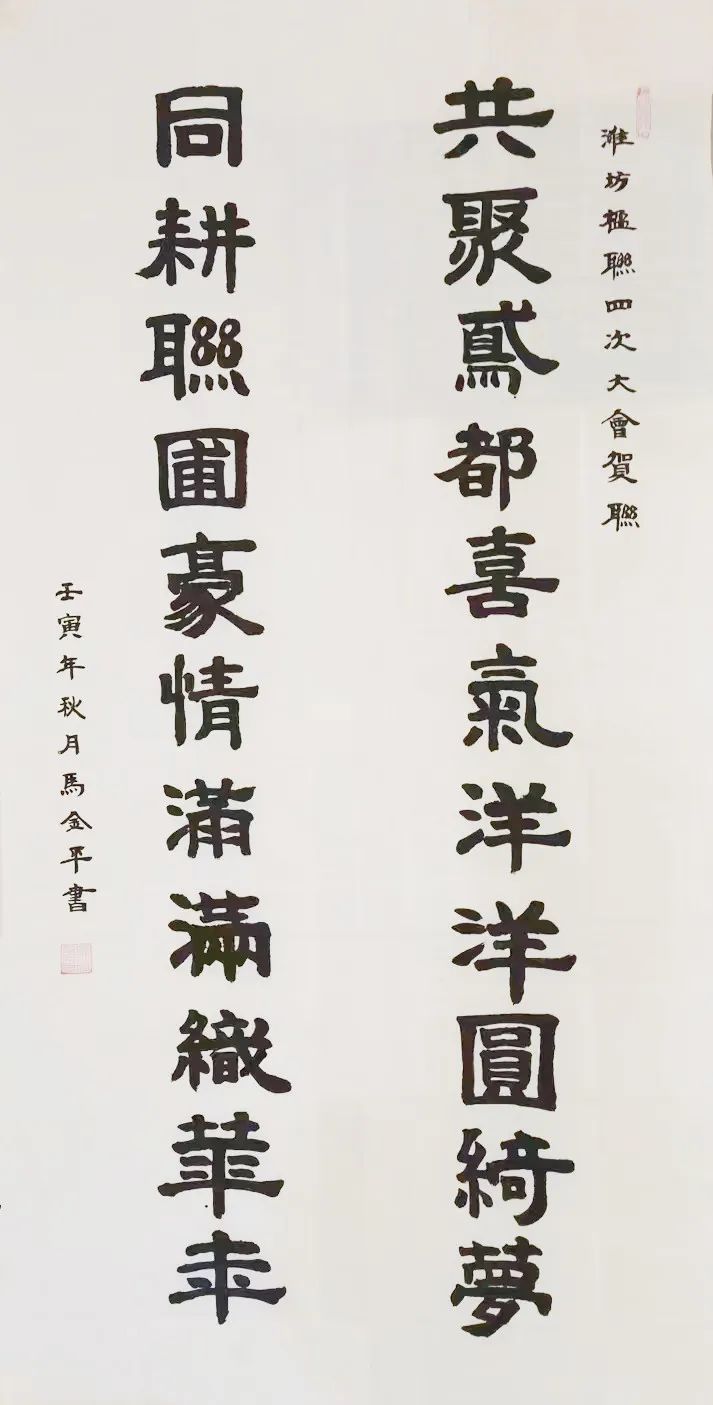 濰坊楹聯四次大會賀聯
共聚鳶都喜氣洋洋圓綺夢
同耕聯圃豪情滿滿織華年
壬寅年秋月馬金平書